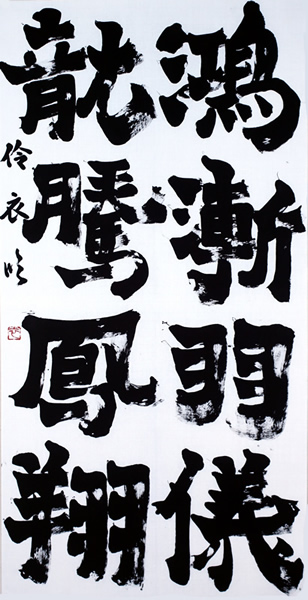 鴻漸羽儀
龍騰鳳翔
伶衣